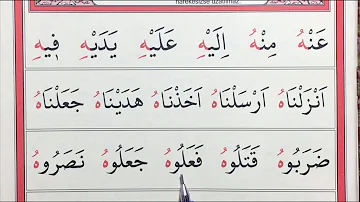 harekesizse uzatılmaz.
عَنْهُ مِنْهُ اِلَيْهِ عَلَيْهِ يَدَيْهِ فِيهِ
اَنْزَلْنَاهُ اَرْسَلْنَاهُ اَخَذْنَاهُ هَدَيْنَاهُ جَعَلْنَاهُ
ضَرَبُوهُ قَتَلُوهُ فَعَلُوهُ جَعَلُوهُ نَصَرُوهُ